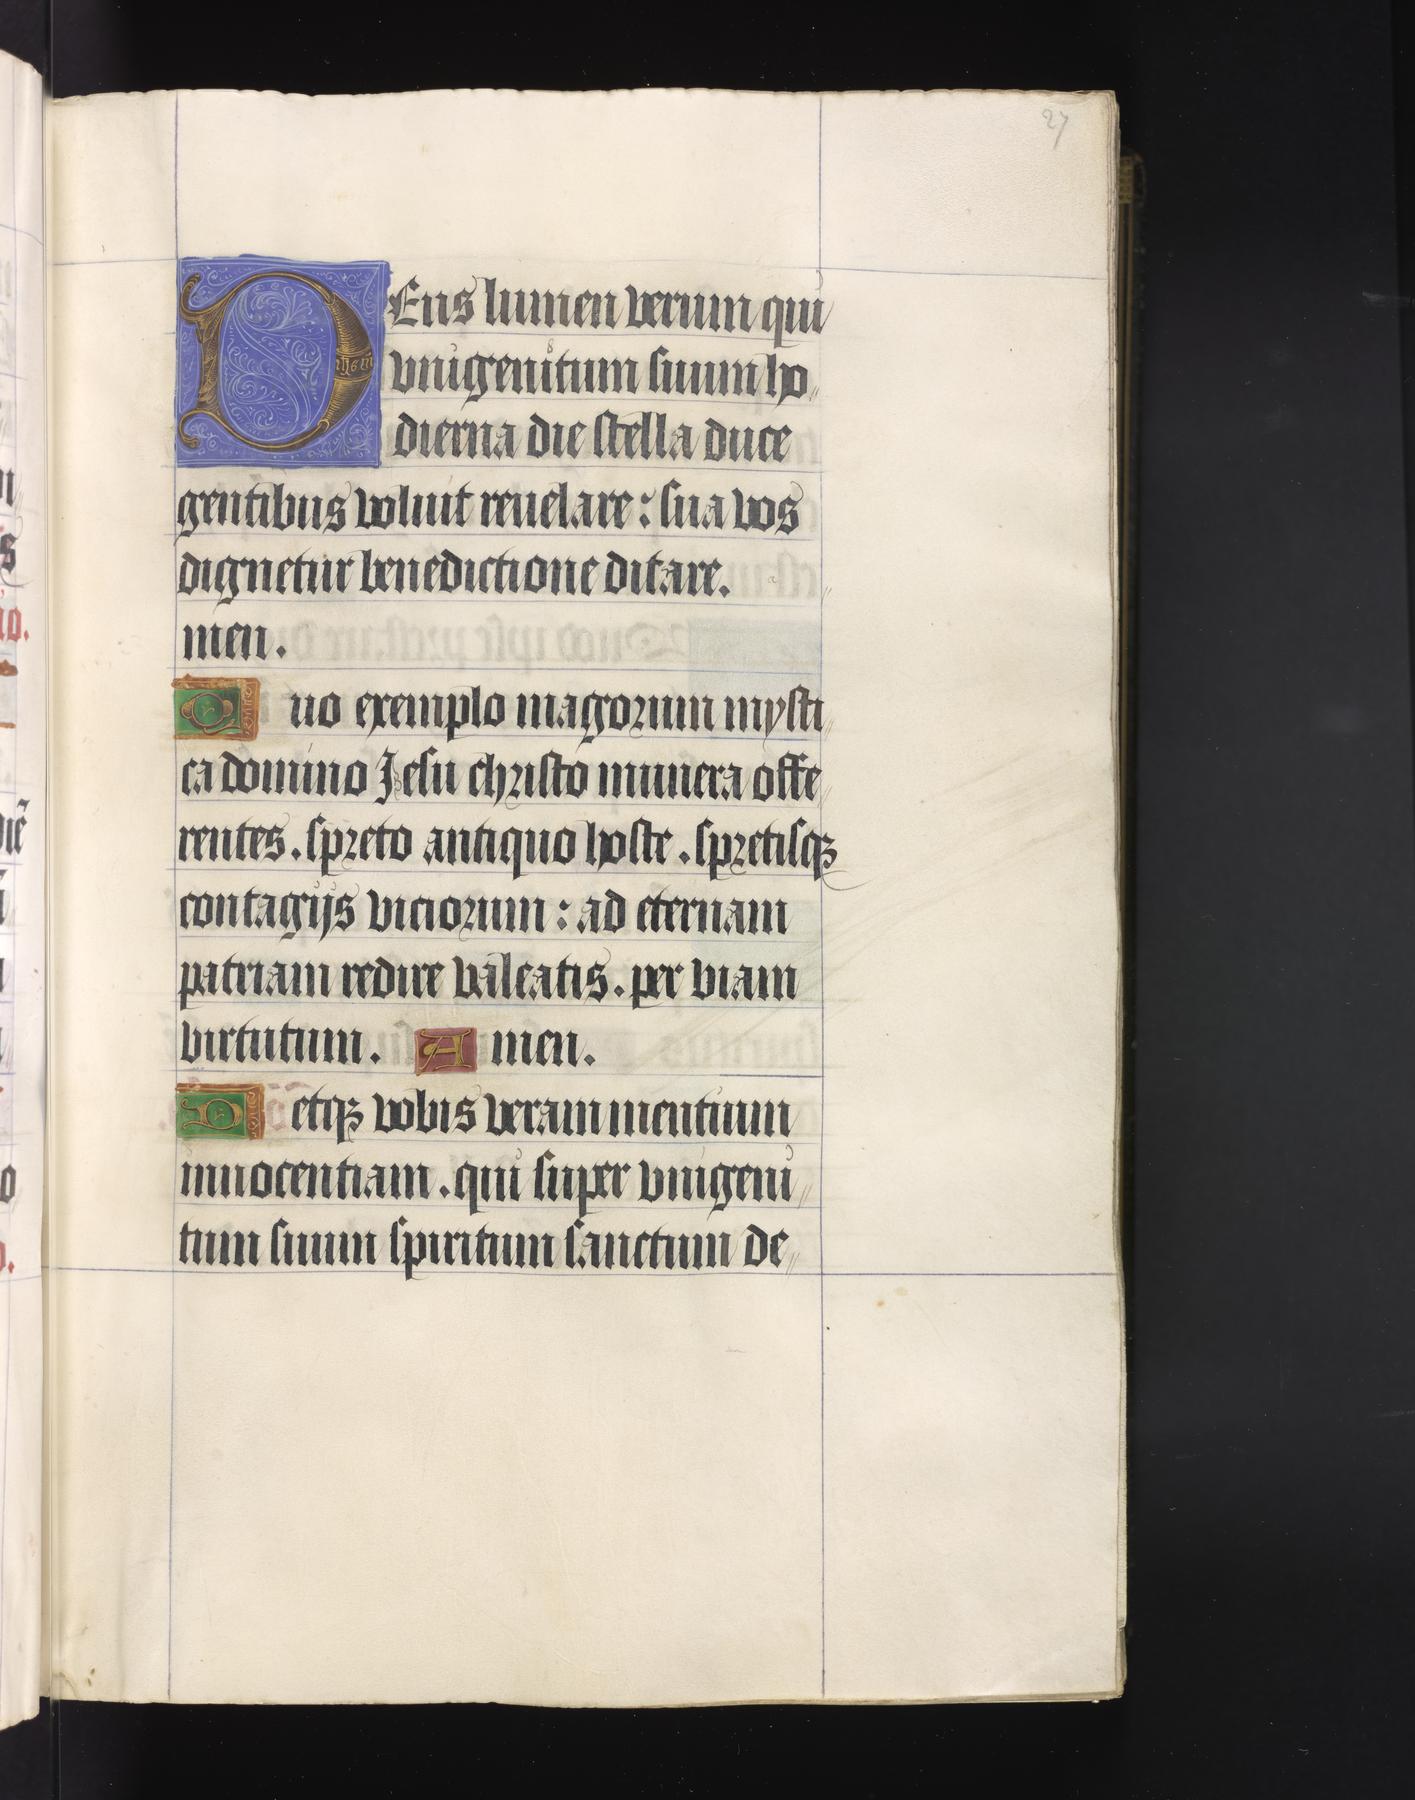 27
DEus lumen verum qui
vnigenitum suum ho
dierna die stella duce
gentibus voluit reuelare: sua vos
dignetur benedictione ditare.
men.
Quo exemplo magorum mysti
ca domino Jesu christo munera offe
rentes. spreto antiquo hoste. spretisqꝫ
contagijs viciorum: ad eternam
patriam redire valeatis. per viam
virtutum. Amen.
Detqꝫ vobis veram mentium
innocentiam. qui super vnigeni
tum suum spiritum sanctum de